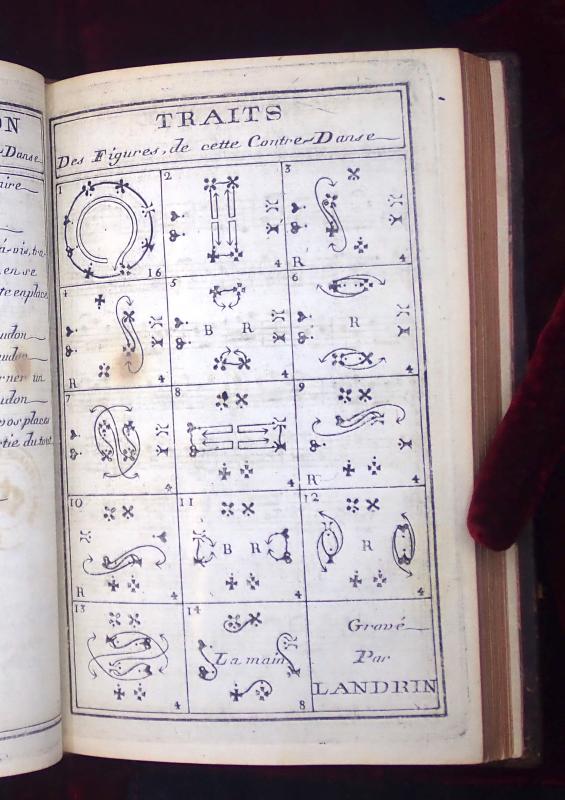 TRAITS
Des Figures, de cette Contre-Danse
ON
-Danse
aire
en se
te en place
udon
audon
rner un
udon
vos places
rtie du tout
1
16
2
4
3
R
4
4
R
4
5
B R
4
6
R
4
7
4
8
4
9
R
4
10
R
4
11
B R
4
12
R
4
13
4
14
La main
8
Gravé
Par
LANDRIN